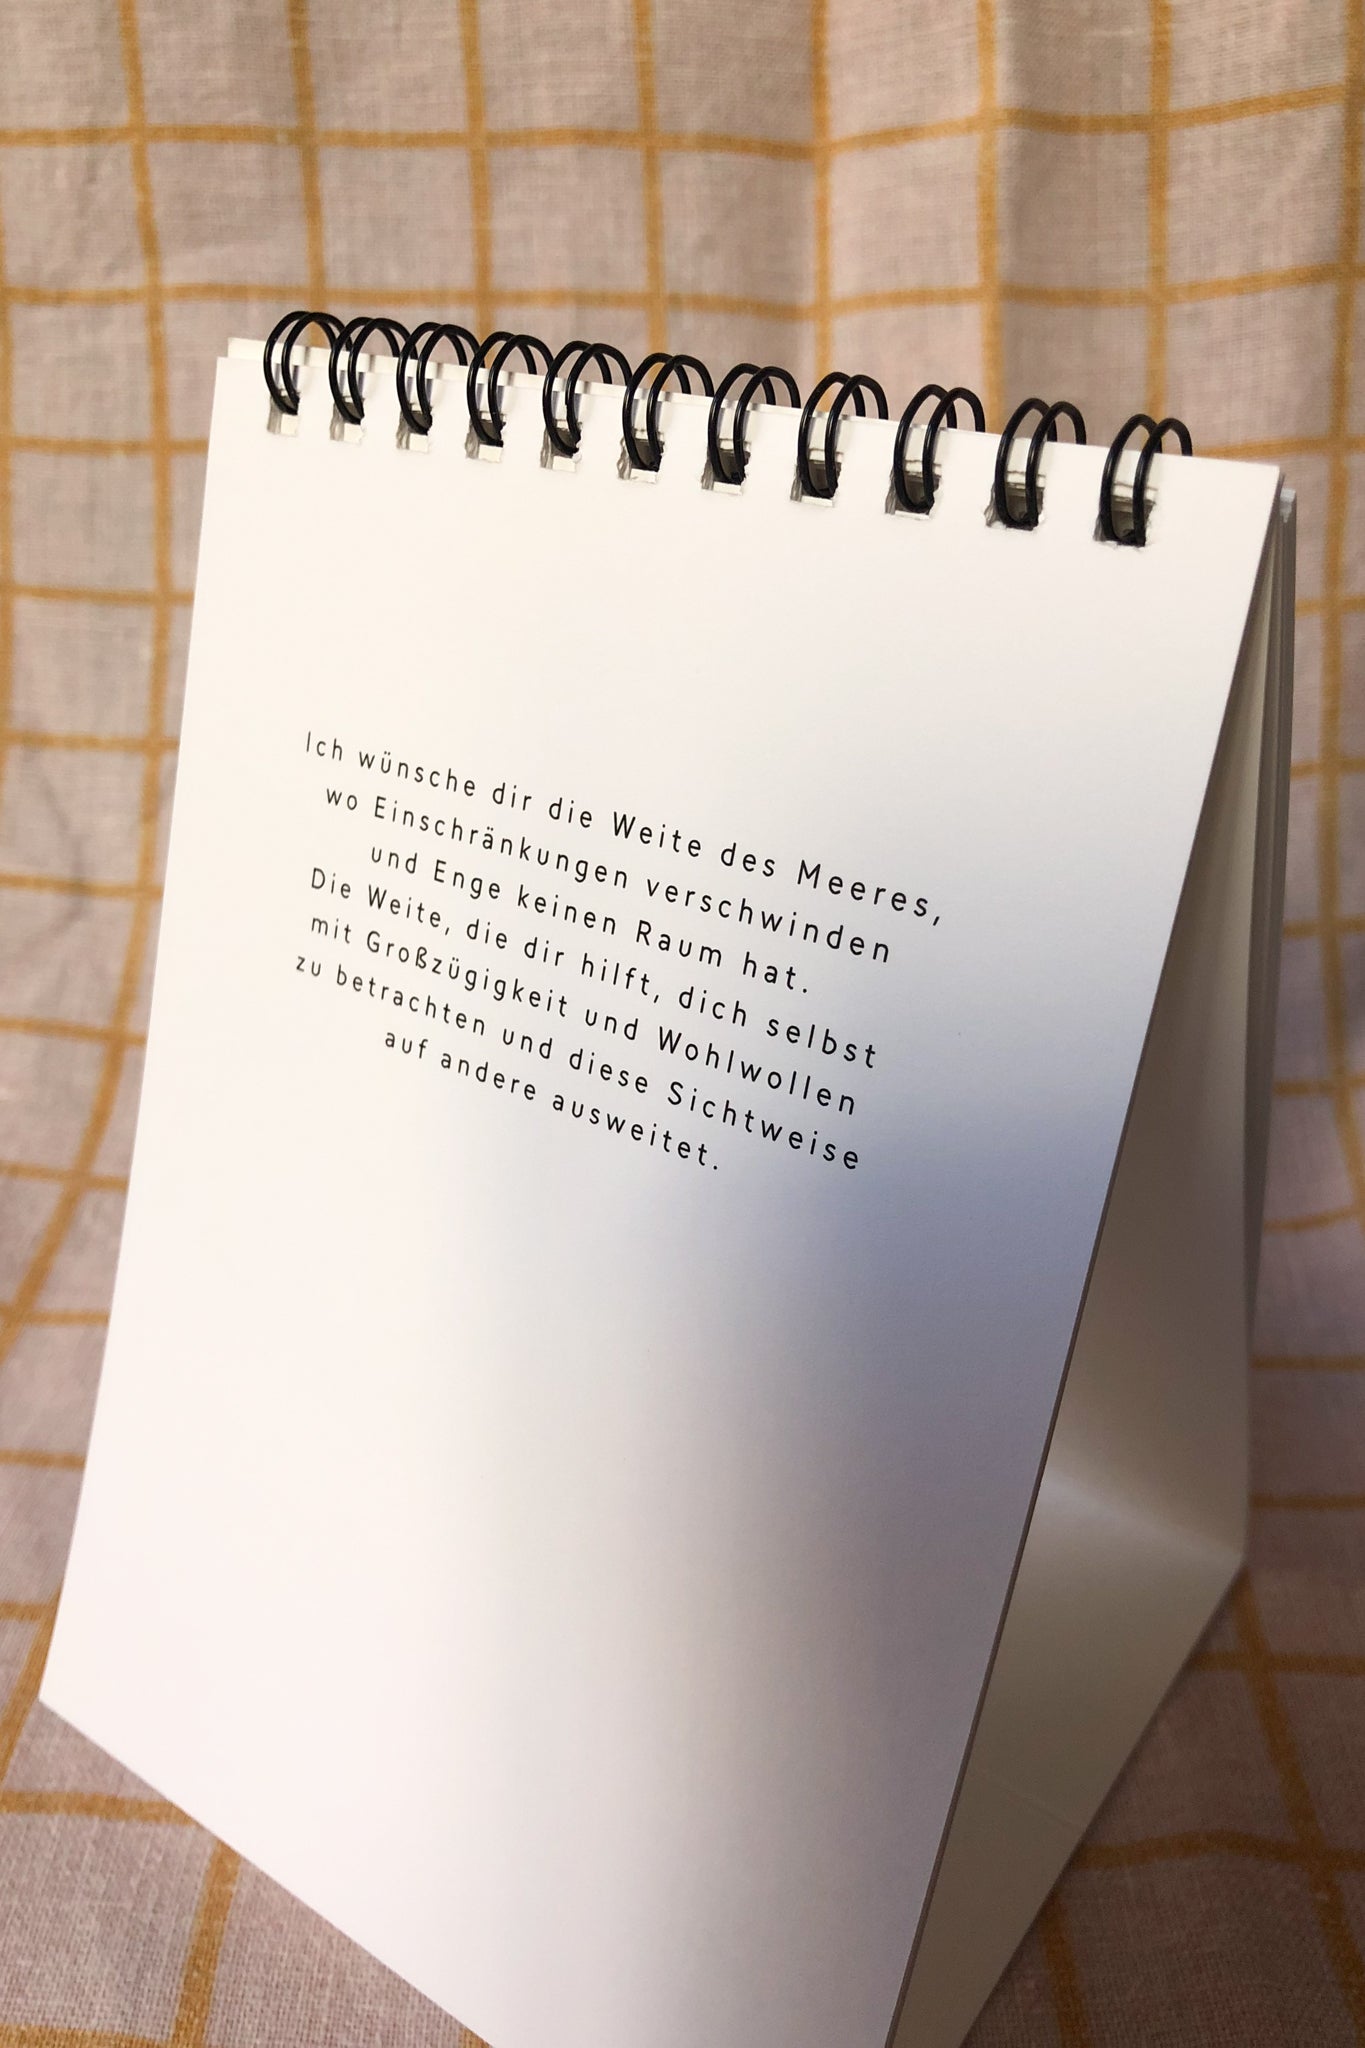 Ich wünsche dir die Weite des Meeres,
wo Einschränkungen verschwinden
und Enge keinen Raum hat.
Die Weite, die dir hilft, dich selbst
mit Großzügigkeit und Wohlwollen
zu betrachten und diese Sichtweise
auf andere ausweitet.